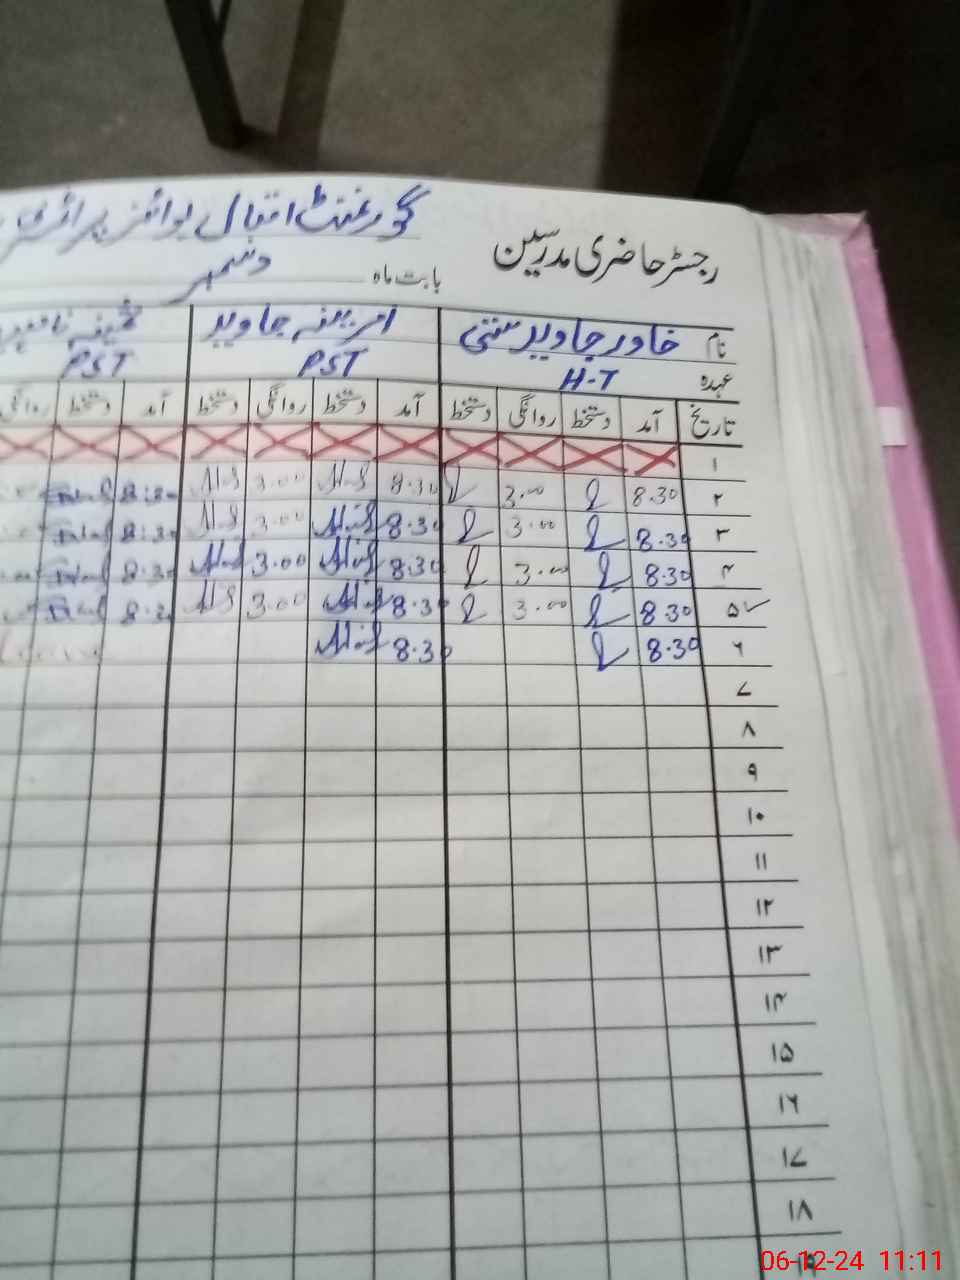 رجسٹر حاضری مدرسین گورنمنٹ اقبال بوائز پرائمری
بابت ماہ دسمبر
نام خاور جاوید ستی امرینہ جاوید
عہدہ H-T PST PST
تاریخ آمد دستخط روانگی دستخط آمد دستخط روانگی دستخط آمد دستخط روانگی
۱
۲ 8.30 3.00 8.30 3.00 8:30
۳ 8.30 3.00 8.30 3.00 8:30
۴ 8.30 3.00 8.30 3.00 8.30
۵ 8.30 3.00 8.30 3.00 8.30
۶ 8.30 8.30
۷
۸
۹
۱۰
۱۱
۱۲
۱۳
۱۴
۱۵
۱۶
۱۷
۱۸
06-12-24 11:11